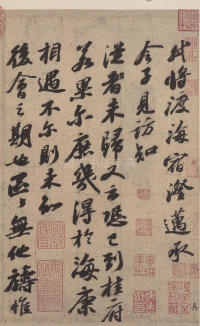 軾將渡海宿澄邁承
令子見訪知
從者未歸又云恐已到桂府
若果爾庶幾得於海康
相遇不爾則未知
後會之期也區區無他禱惟